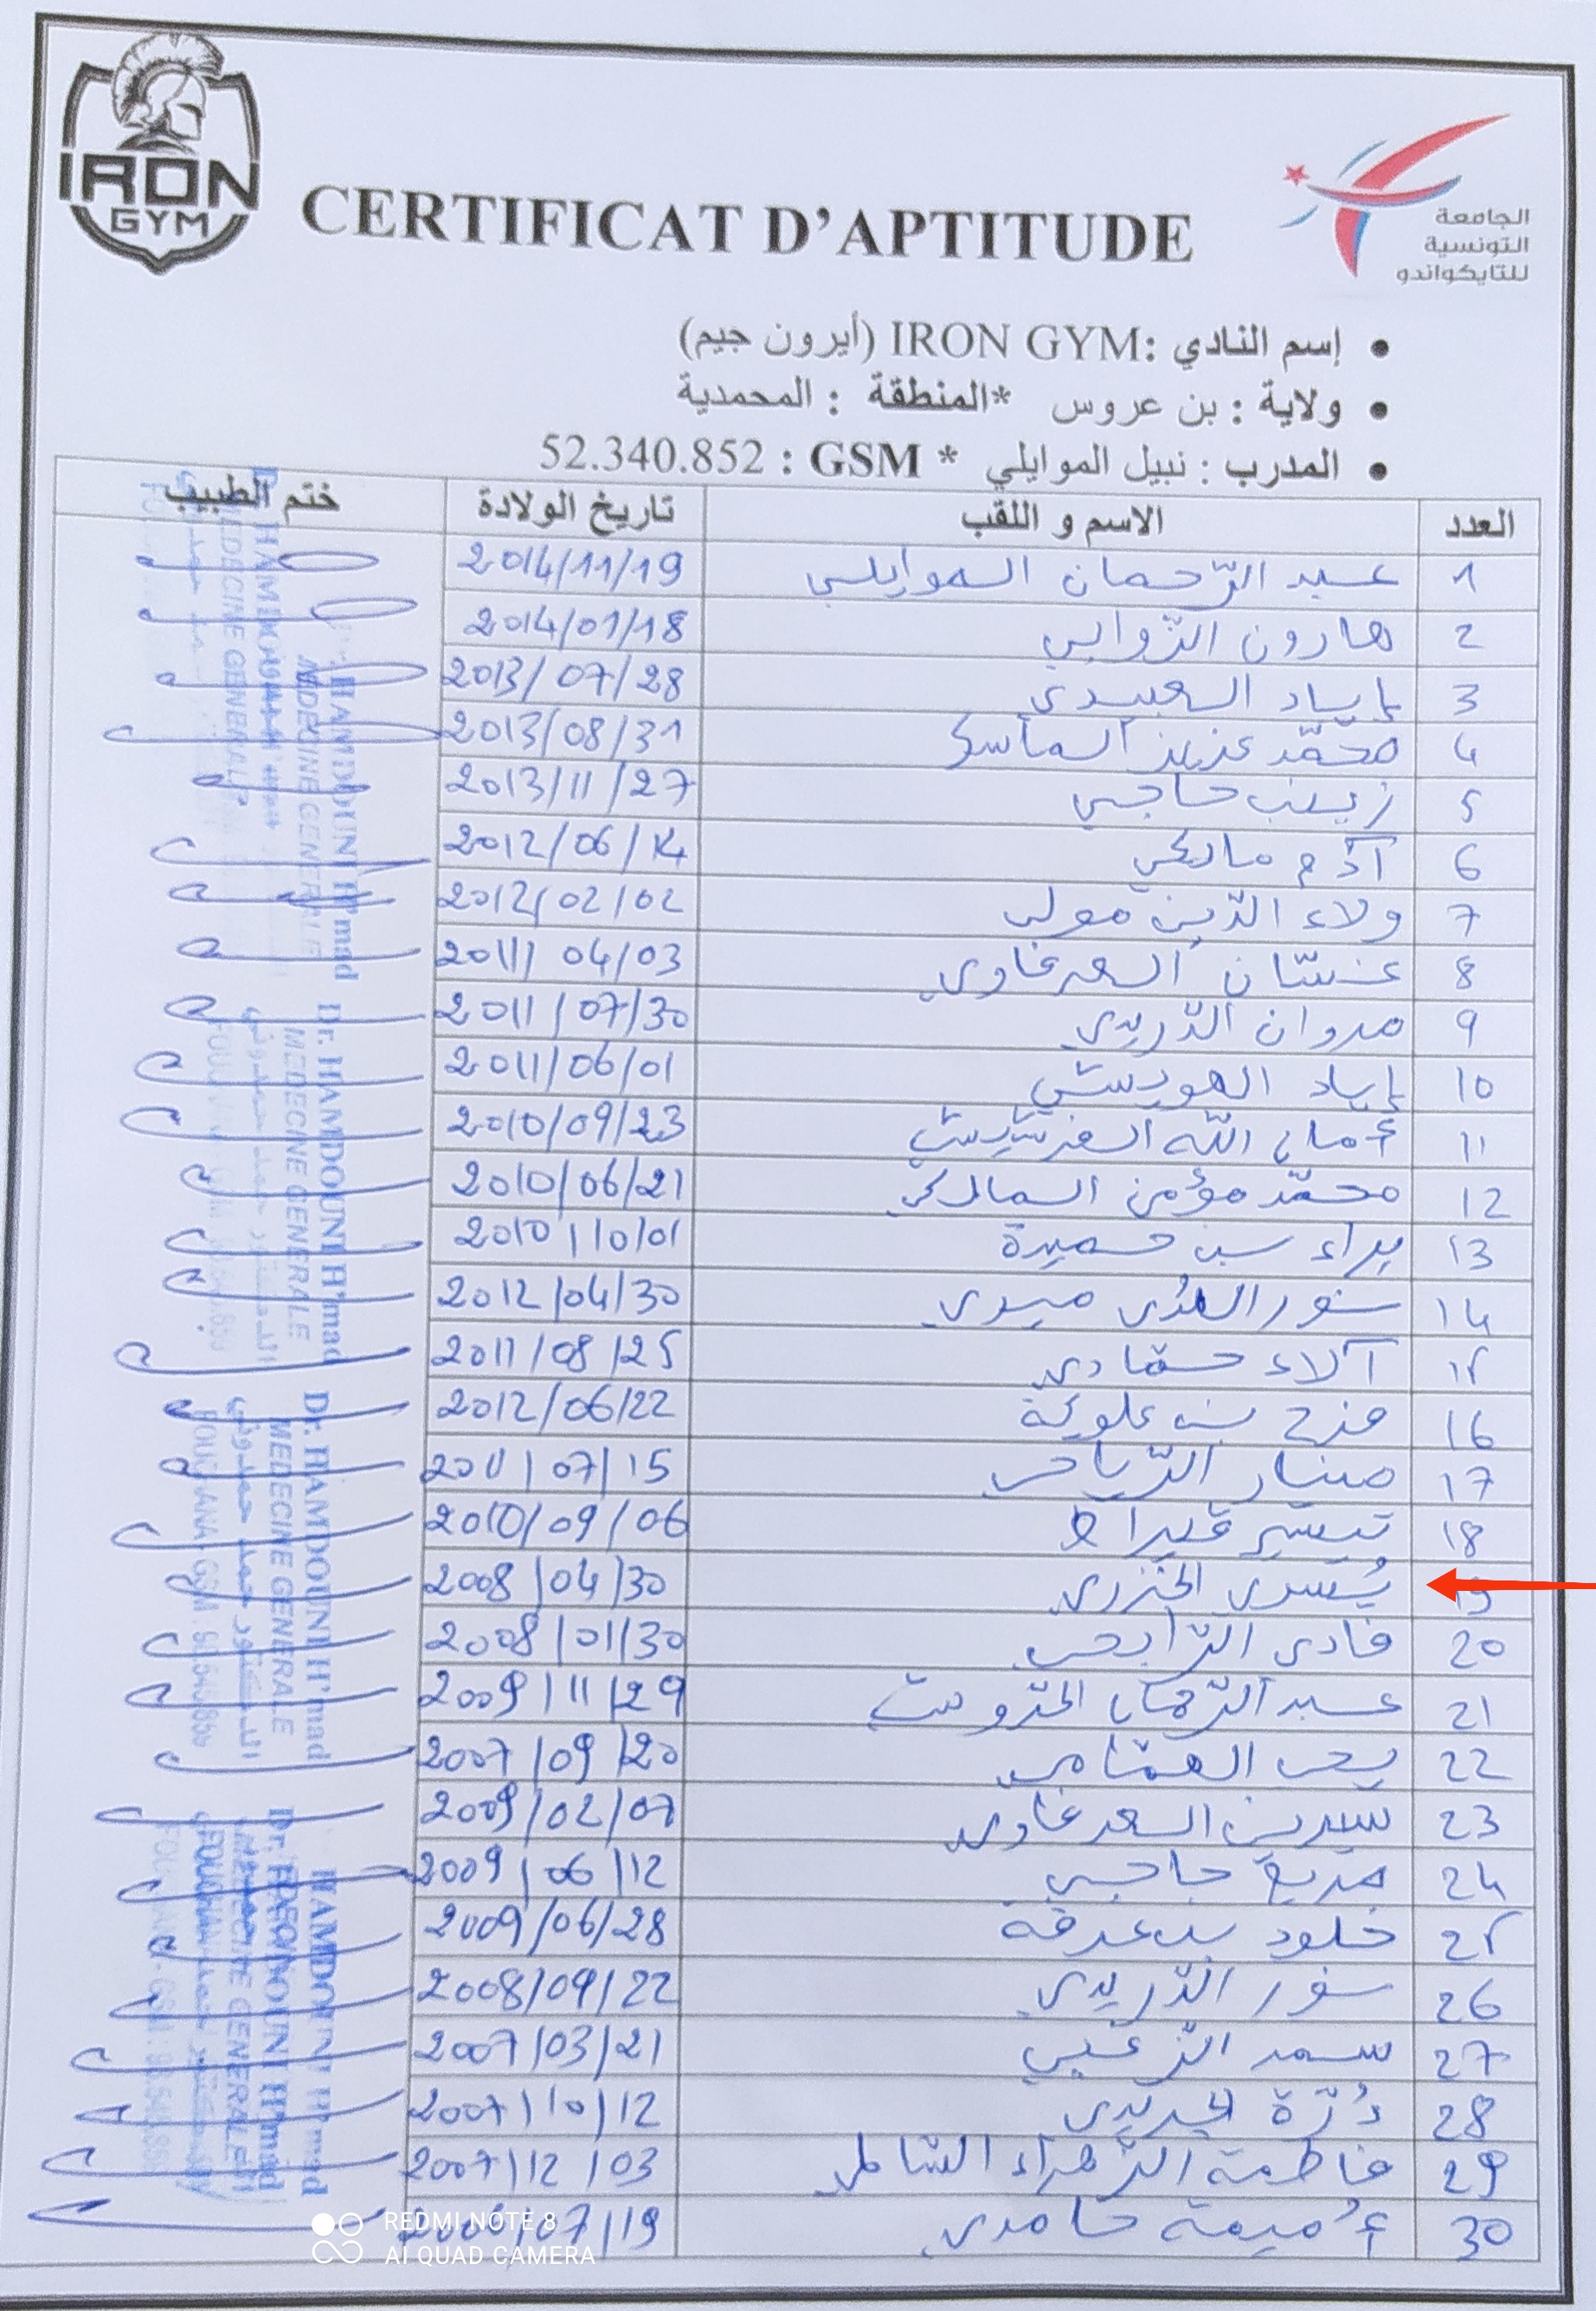 IRON
GYM
CERTIFICAT D'APTITUDE
الجامعة
التونسية
للتايكواندو
• إسم النادي :IRON GYM (أيرون جيم)
• ولاية : بن عروس *المنطقة : المحمدية
• المدرب : نبيل الموايلي * GSM : 52.340.852
العدد الاسم و اللقب تاريخ الولادة ختم الطبيب
1 عبد الرّحمان الموايلي 2014/11/19
2 هارون الزّوابي 2014/01/18
3 إياد العبيدي 2013/07/28
4 محمّد عزيز الماسي 2013/08/31
5 زينب حاجي 2013/11/27
6 آدم مالكي 2012/06/14
7 ولاء الدّين مولي 2012/02/02
8 غسّان السعرغاوي 2011/04/03
9 مروان الدّريدي 2011/07/30
10 إياد الهويشي 2011/06/01
11 أمان الله الفرشيشي 2010/09/23
12 محمّد مؤمن المالكي 2010/06/21
13 براء بن حميدة 2010/10/01
14 نور الهدى ميدي 2012/04/30
15 آلاء حمّادي 2011/08/25
16 فرح بن علوية 2012/06/22
17 منار الرّياحي 2011/07/15
18 تيسير قيراط 2010/09/06
19 يُسرى الخزري 2008/04/30
20 فادي الرّابحي 2008/01/30
21 عبد الرّحمان 2009/11/29
22 يحي الهمّامي 2007/09/20
23 سيرين السعرغاوي 2009/02/07
24 مريم حاجي 2009/06/12
25 خلود بن عرفة 2009/06/28
26 نور الدّريدي 2008/09/22
27 سمر الزّغبي 2007/03/21
28 دُرّة الجريدي 2007/10/12
29 فاطمة الزّهراء الشاملي 2007/12/03
30 أُميمة حامدي 07/19
Dr. HAMDOUNI H'mad
MEDECINE GENERALE
Dr. HAMDOUNI H'mad
MEDECINE GENERALE
الدكتور حمد حمدوني
Dr. HAMDOUNI H'mad
MEDECINE GENERALE
الدكتور حمد حمدوني
REDMI NOTE 8
AI QUAD CAMERA